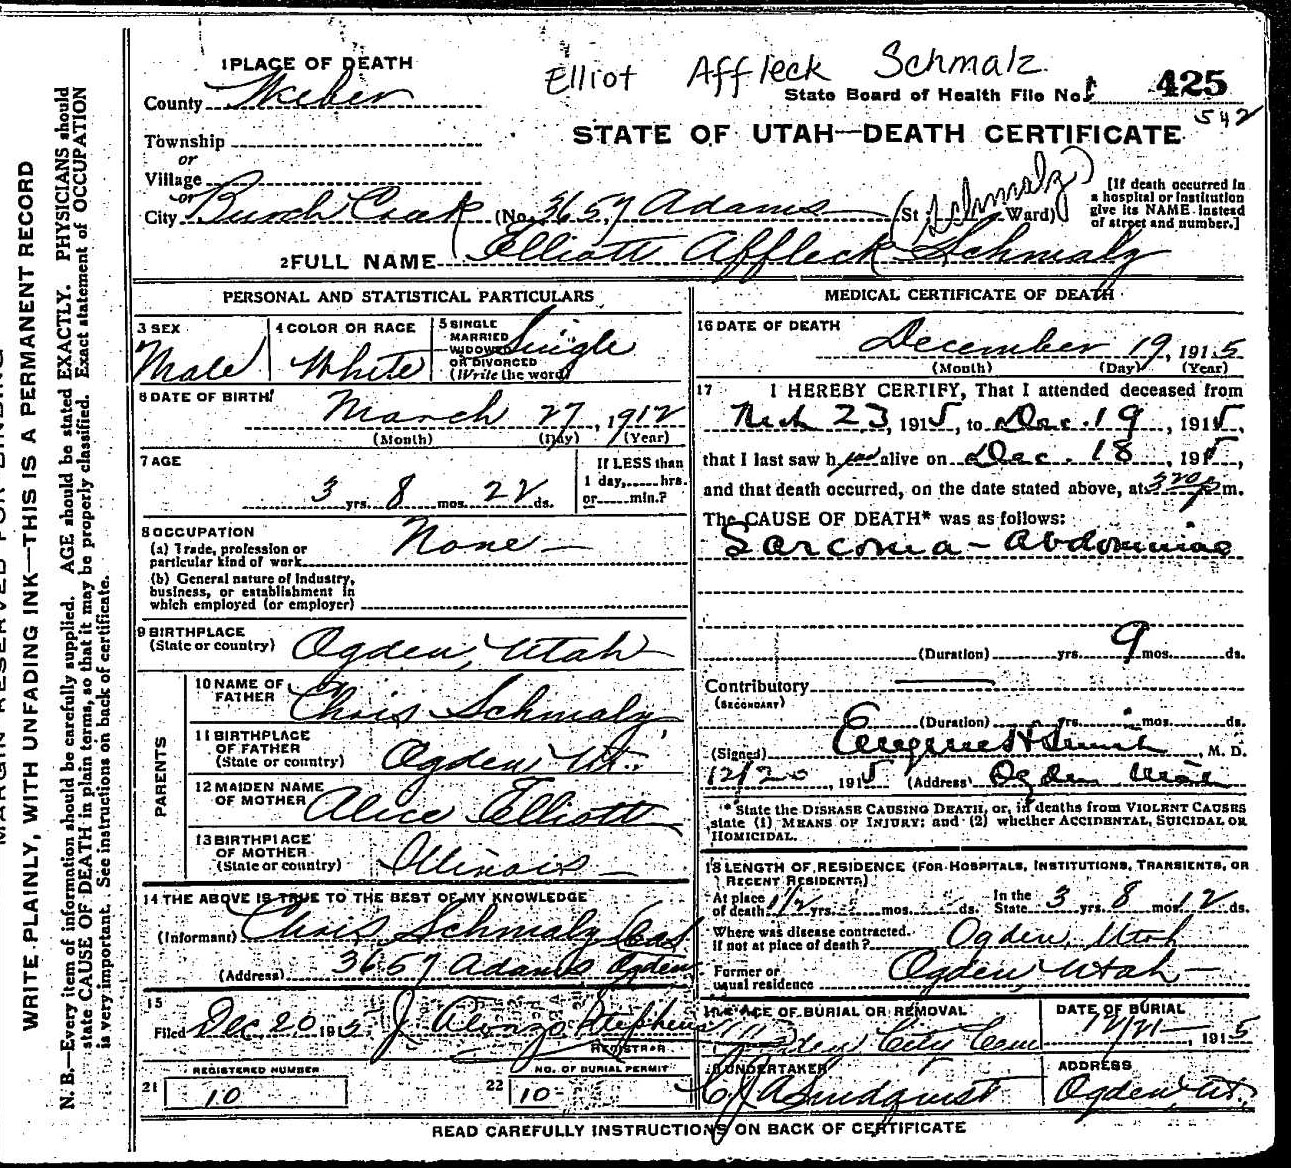 Elliot Affleck Schmalz
1 PLACE OF DEATH
County Weber
State Board of Health File No. 425
542
STATE OF UTAH—DEATH CERTIFICATE
Township
or
Village
or
City Burch Creek (No. 3657 Adams St Ward)
(Schmalz)
[If death occurred in a hospital or institution give its NAME instead of street and number.]
2 FULL NAME Elliott Affleck Schmalz
PERSONAL AND STATISTICAL PARTICULARS
3 SEX
Male
4 COLOR OR RACE
White
5 SINGLE MARRIED WIDOWED OR DIVORCED (Write the word)
Single
6 DATE OF BIRTH
March 27, 1912
(Month) (Day) (Year)
7 AGE
3 yrs. 8 mos. 22 ds.
If LESS than
1 day, hrs.
or min.?
8 OCCUPATION
(a) Trade, profession or particular kind of work None
(b) General nature of Industry, business, or establishment in which employed (or employer)
9 BIRTHPLACE
(State or country) Ogden, Utah
PARENTS
10 NAME OF FATHER Chris Schmalz
11 BIRTHPLACE OF FATHER
(State or country) Ogden Ut.
12 MAIDEN NAME OF MOTHER Alice Elliott
13 BIRTHPLACE OF MOTHER
(State or country) Illinois
14 THE ABOVE IS TRUE TO THE BEST OF MY KNOWLEDGE
(Informant) Chris Schmalz
(Address) 3657 Adams Ogden
15
Filed Dec 20 1915 J Alonzo Stephens
REGISTRAR
21 REGISTERED NUMBER
10
22 NO. OF BURIAL PERMIT
10
MEDICAL CERTIFICATE OF DEATH
16 DATE OF DEATH
December 19, 1915
(Month) (Day) (Year)
17 I HEREBY CERTIFY, That I attended deceased from
23, 1915, to Dec. 19, 1915,
that I last saw h alive on Dec. 18, 1915,
and that death occurred, on the date stated above, at m.
The CAUSE OF DEATH* was as follows:
Sarcoma - Abdominal
(Duration) yrs. 9 mos. ds.
Contributory
(SECONDARY)
(Duration) yrs. mos. ds.
(Signed) Eugene H Smith, M. D.
12/20, 1915 (Address) Ogden Utah
* State the DISEASE CAUSING DEATH, or, in deaths from VIOLENT CAUSES
state (1) MEANS OF INJURY; and (2) whether ACCIDENTAL, SUICIDAL OR
HOMICIDAL.
18 LENGTH OF RESIDENCE (FOR HOSPITALS, INSTITUTIONS, TRANSIENTS, OR
RECENT RESIDENTS)
At place of death 1 1/2 yrs. mos. ds. In the State 3 8 mos 12 ds.
Where was disease contracted.
If not at place of death? Ogden, Utah
Former or
usual residence Ogden, Utah
19 PLACE OF BURIAL OR REMOVAL
Ogden City Cem
DATE OF BURIAL
12/21, 1915
20 UNDERTAKER
ADDRESS
Ogden Ut.
READ CAREFULLY INSTRUCTIONS ON BACK OF CERTIFICATE
WRITE PLAINLY, WITH UNFADING INK—THIS IS A PERMANENT RECORD
N. B.—Every item of information should be carefully supplied. AGE should be stated EXACTLY. PHYSICIANS should
state CAUSE OF DEATH in plain terms, so that it may be properly classified. Exact statement of OCCUPATION
is very important. See instructions on back of certificate.